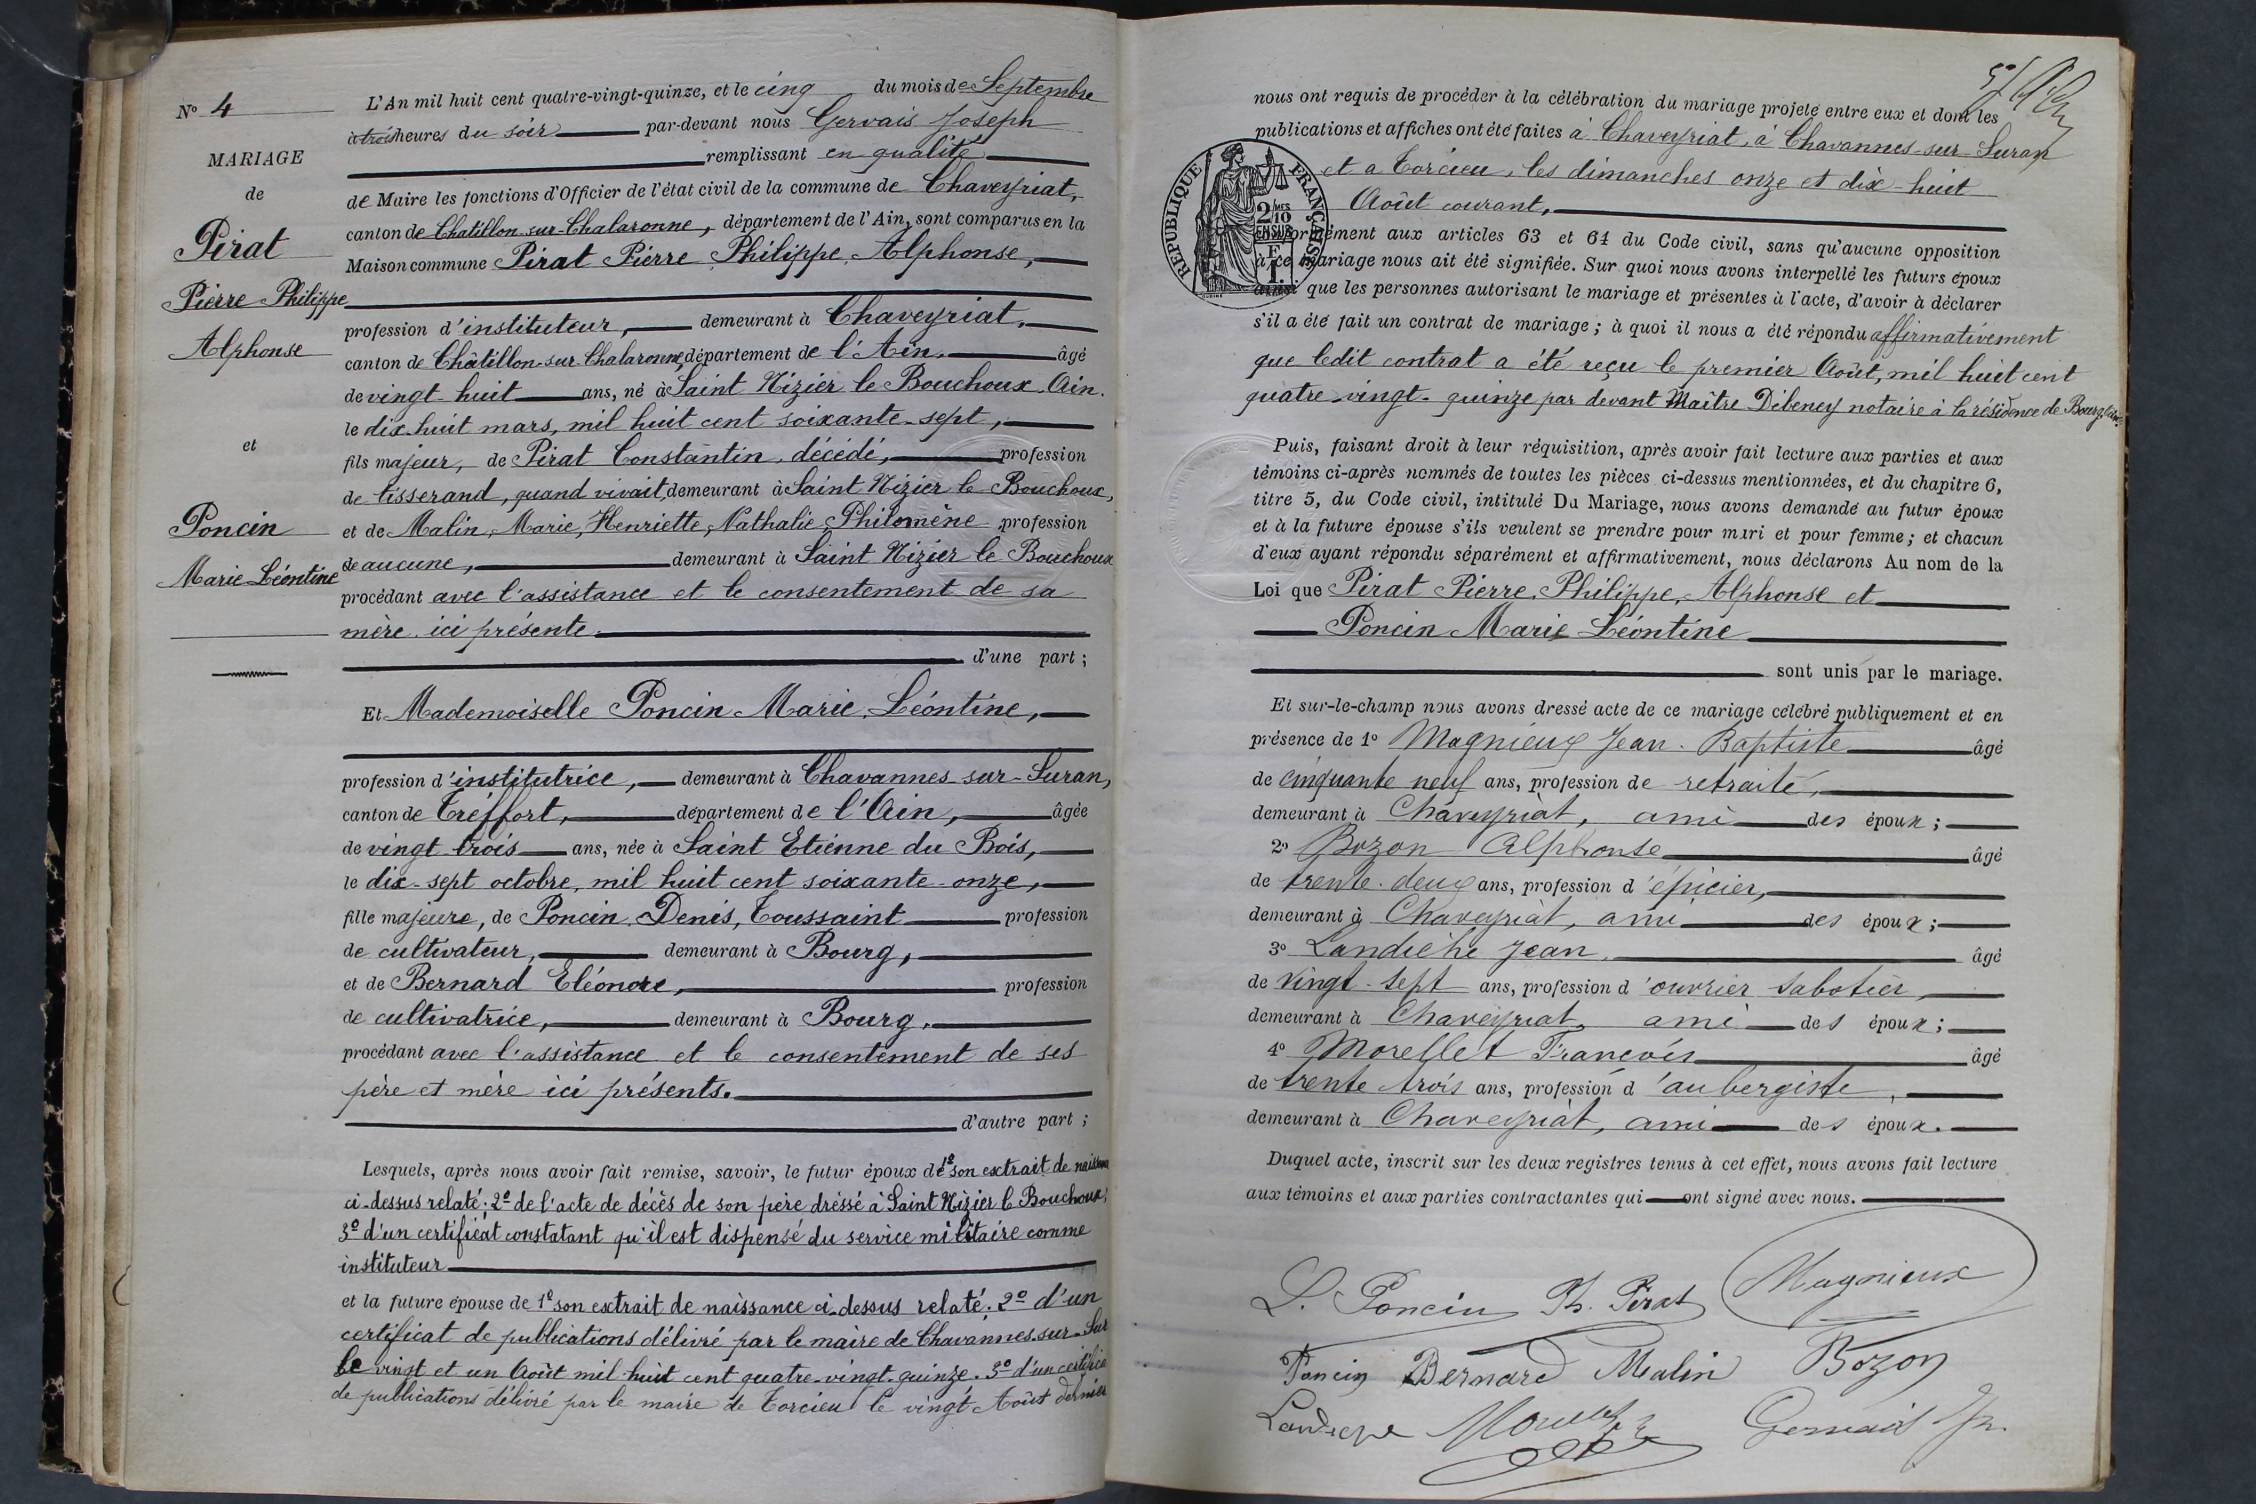 Nº 4
MARIAGE
de
Pirat
Pierre Philippe
Alphonse
et
Poncin
Marie Léontine
L'An mil huit cent quatre-vingt-quinze, et le cinq du mois de Septembre
à trois heures du soir par-devant nous Gervais Joseph
remplissant en qualité
de Maire les fonctions d'Officier de l'état civil de la commune de Chaveyriat,
canton de Chatillon-sur-Chalaronne, département de l'Ain, sont comparus en la
Maison commune Pirat Pierre Philippe, Alphonse,
profession d'instituteur, demeurant à Chaveyriat,
canton de Châtillon-sur-Chalaronne, département de l'Ain. âgé
de vingt-huit ans, né à Saint Nizier le Bouchoux. Ain.
le dix-huit mars, mil huit cent soixante-sept,
fils majeur, de Pirat Constantin, décédé, profession
de tisserand, quand vivait, demeurant à Saint Nizier le Bouchoux,
et de Malin, Marie, Henriette, Nathalie, Philomène profession
de aucune, demeurant à Saint Nizier le Bouchoux
procédant avec l'assistance et le consentement de sa
mère ici présente.
d'une part ;
Et Mademoiselle Poncin Marie, Léontine,
profession d'institutrice, demeurant à Chavannes-sur-Suran,
canton de Tréffort, département de l'Ain, âgée
de vingt-trois ans, née à Saint Etienne du Bois,
le dix-sept octobre, mil huit cent soixante-onze,
fille majeure, de Poncin, Denis, Toussaint profession
de cultivateur, demeurant à Bourg,
et de Bernard Eléonore, profession
de cultivatrice, demeurant à Bourg,
procédant avec l'assistance et le consentement de ses
père et mère ici présents.
d'autre part ;
Lesquels, après nous avoir fait remise, savoir, le futur époux de 1º son extrait de naissance
ci-dessus relaté; 2º de l'acte de décès de son père dréssé à Saint Nizier le Bouchoux;
3º d'un certificat constatant qu'il est dispensé du service militaire comme
instituteur
et la future épouse de 1º son extrait de naissance ci-dessus relaté. 2º d'un
certificat de publications délivré par le maire de Chavannes-sur-Sur
le vingt et un Août mil huit cent quatre-vingt-quinze. 3º d'un certificat
de publications délivré par le maire de Torcieu le vingt Août dernier
nous ont requis de procéder à la célébration du mariage projeté entre eux et dont les
publications et affiches ont été faites à Chaveyriat, à Chavannes-sur-Suran
et a Torcieu, les dimanches onze et dix-huit
Août courant,
conformément aux articles 63 et 64 du Code civil, sans qu'aucune opposition
à ce mariage nous ait été signifiée. Sur quoi nous avons interpellé les futurs époux
ainsi que les personnes autorisant le mariage et présentes à l'acte, d'avoir à déclarer
s'il a été fait un contrat de mariage ; à quoi il nous a été répondu affirmativement
que ledit contrat a été reçu le premier Août, mil huit cent
quatre-vingt-quinze par devant Maître Débeney notaire à la résidence de Bourg (Ain).
RÉPUBLIQUE FRANÇAISE
2 MES
10
EN SUS
Puis, faisant droit à leur réquisition, après avoir fait lecture aux parties et aux
témoins ci-après nommés de toutes les pièces ci-dessus mentionnées, et du chapitre 6,
titre 5, du Code civil, intitulé Du Mariage, nous avons demandé au futur époux
et à la future épouse s'ils veulent se prendre pour mari et pour femme ; et chacun
d'eux ayant répondu séparément et affirmativement, nous déclarons Au nom de la
Loi que Pirat Pierre, Philippe, Alphonse et
Poncin Marie Léontine
sont unis par le mariage.
Et sur-le-champ nous avons dressé acte de ce mariage célébré publiquement et en
présence de 1º Magnieux Jean-Baptiste âgé
de cinquante neuf ans, profession de retraité,
demeurant à Chaveyriat, ami des époux ;
2º Bozon Alphonse âgé
de trente-deux ans, profession d'épicier,
demeurant à Chaveyriat, ami des époux ;
3º Landiche Jean, âgé
de vingt-sept ans, profession d'ouvrier sabotier,
demeurant à Chaveyriat, ami des époux ;
4º Morellet François âgé
de trente trois ans, profession d'aubergiste,
demeurant à Chaveyriat, ami des époux.
Duquel acte, inscrit sur les deux registres tenus à cet effet, nous avons fait lecture
aux témoins et aux parties contractantes qui ont signé avec nous.
L. Poncin Ph. Pirat Magnieux
Poncin Bernard Malin Bozon
Landiche Morellet Gervais Jh.